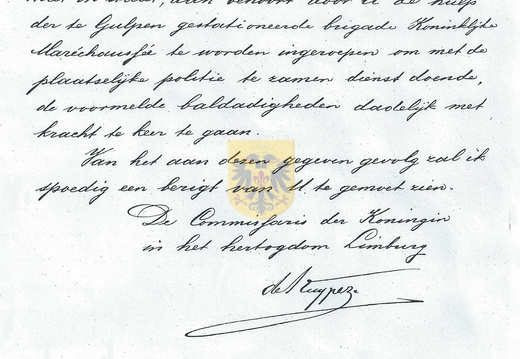 door U de hulp
der te Gulpen gestationeerde brigade Koninklijke
Maréchaussée te worden ingeroepen om met de
plaatselijke politie te zamen dienst doende,
de voormelde baldadigheden dadelijk met
kracht te keer te gaan.
Van het aan dezen gegeven gevolg zal ik
spoedig een berigt van U te gemoet zien.
De Commissaris der Koningin
in het hertogdom Limburg